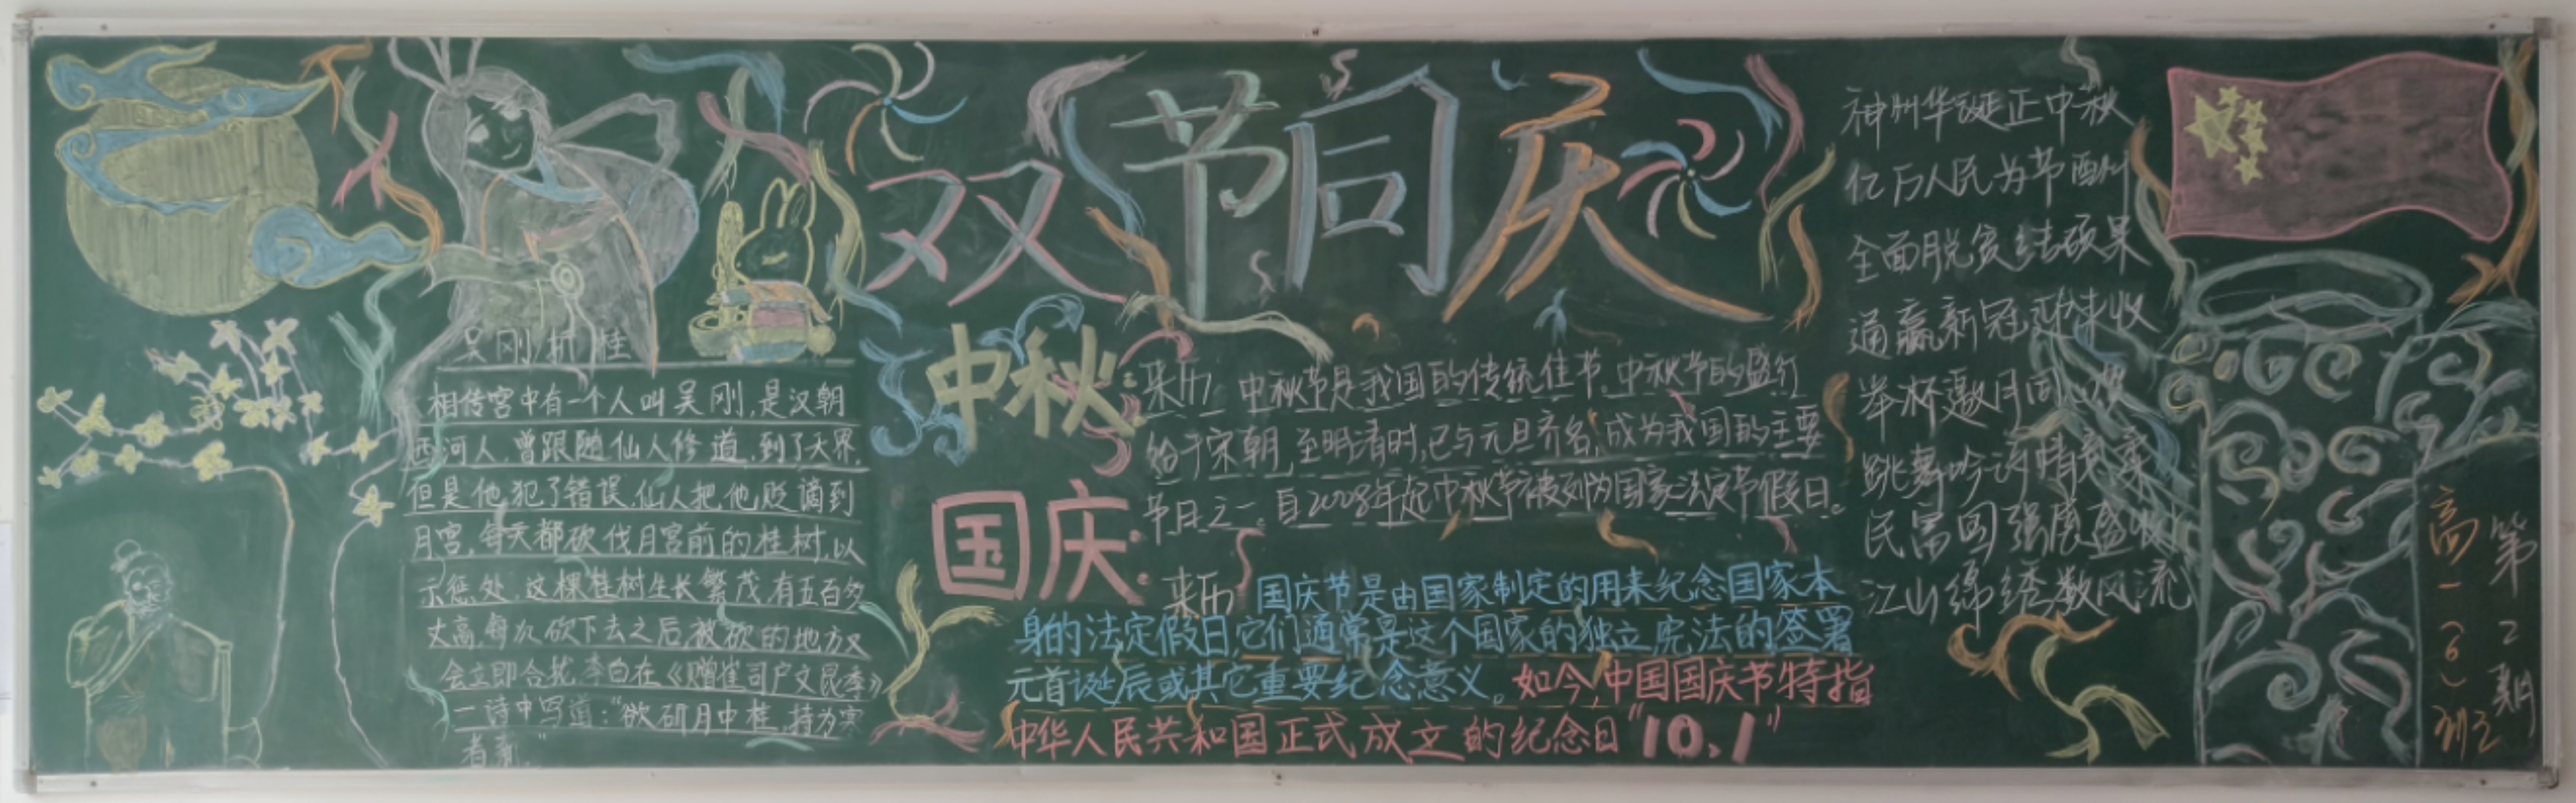 双节同庆
吴刚折桂
相传宫中有一个人叫吴刚,是汉朝
西河人,曾跟随仙人修道,到了天界,
但是他犯了错误,仙人把他贬谪到
月宫,每天都砍伐月宫前的桂树,以
示惩处,这棵桂树生长繁茂,有五百多
丈高,每次砍下去之后,被砍的地方又
会立即合拢,李白在《赠崔司户文昆季》
一诗中写道:“欲斫月中桂,持为寒
者薪。”
中秋:
来历 中秋节是我国的传统佳节,中秋节的盛行
始于宋朝,至明清时,已与元旦齐名,成为我国的主要
节日之一。自2008年起中秋节被列为国家法定节假日。
国庆:
来历 国庆节是由国家制定的用来纪念国家本
身的法定假日,它们通常是这个国家的独立,宪法的签署
元首诞辰或其它重要纪念意义。如今,中国国庆节特指
中华人民共和国正式成立的纪念日“10.1”
神州华诞正中秋
亿万人民为节酬
全面脱贫结硕果
通赢新冠
举杯邀月同
跳舞吟诗情
民富国强
江山绵绣数风流
第2期
高一(6)班